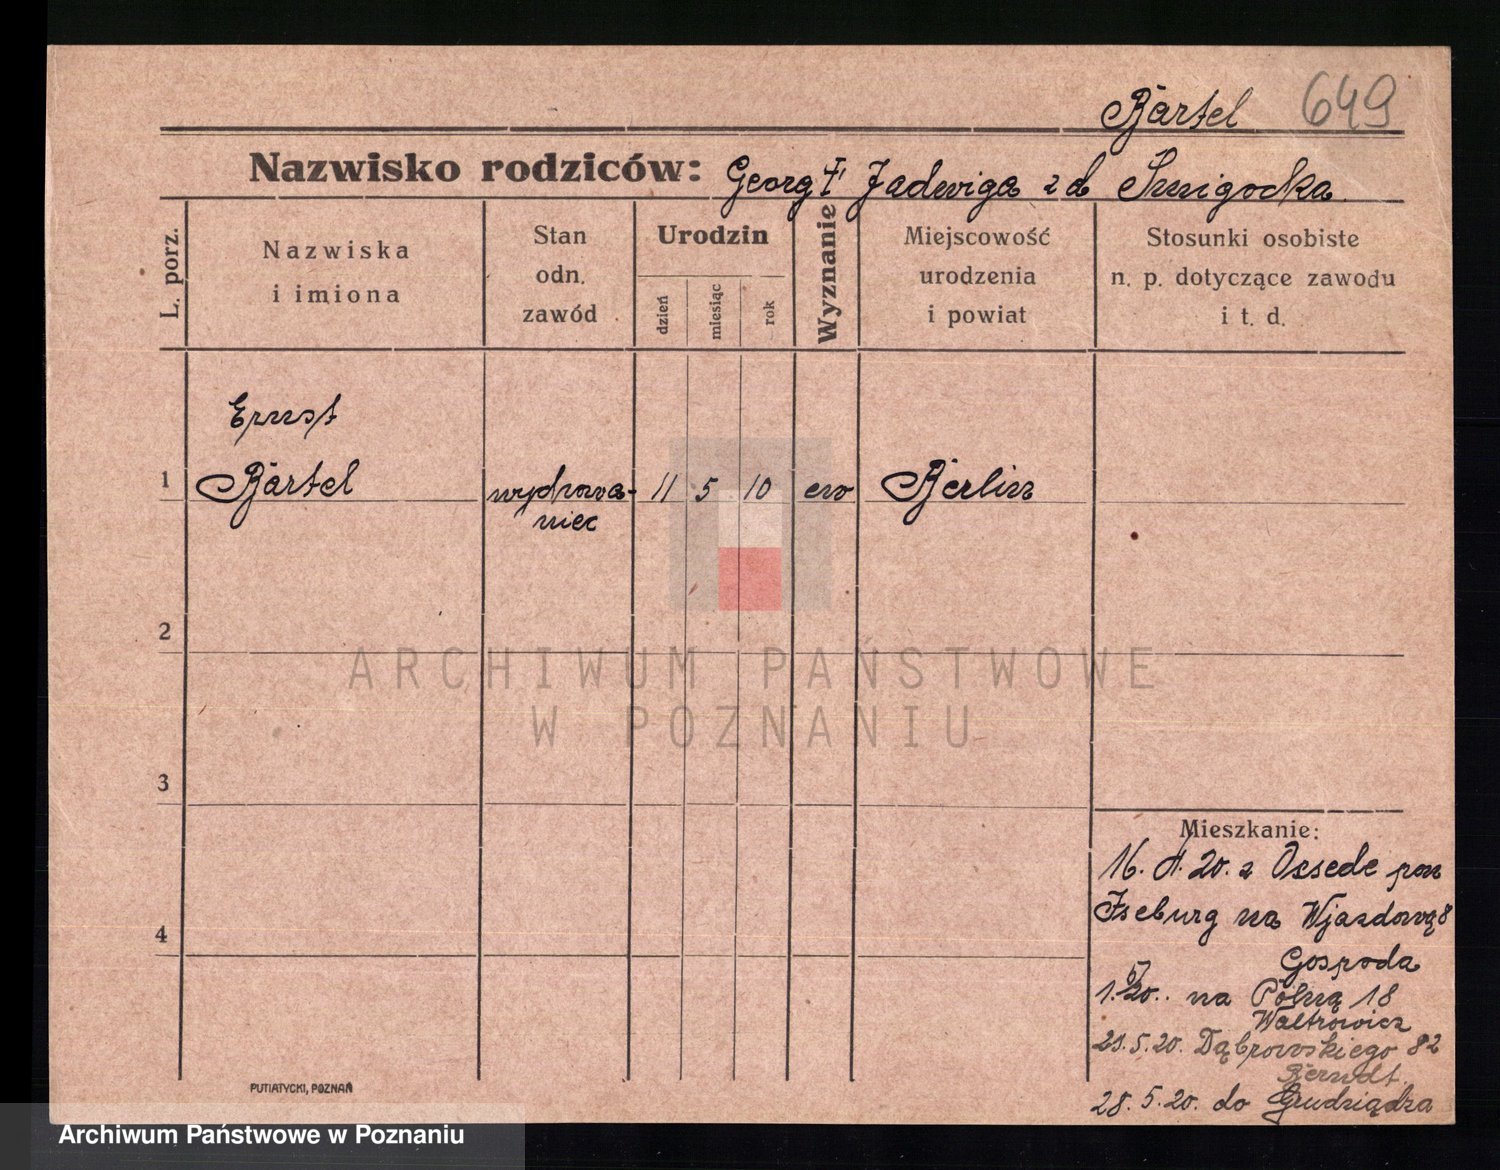 Bärtel 649
Nazwisko rodziców: Georg i Jadwiga z d Smigocka
L. porz.
Nazwiska
i imiona
Stan
odn.
zawód
Urodzin
dzień
miesiąc
rok
Wyznanie
Miejscowość
urodzenia
i powiat
Stosunki osobiste
n. p. dotyczące zawodu
i t. d.
Ernst
1 Bärtel wychowa- 11 5 10 ew Berlin
niec
2
3
4
Mieszkanie:
16. 20. z Ossede pow
Iseburg na Wjazdową 8
Gospoda
1. 20. na Polną 18
Waltrowicz
21.5.20. Dąbrowskiego 82
Berndt
28.5.20. do Grudziądza
PUTIATYCKI, POZNAŃ
ARCHIWUM PAŃSTWOWE
W POZNANIU
Archiwum Państwowe w Poznaniu